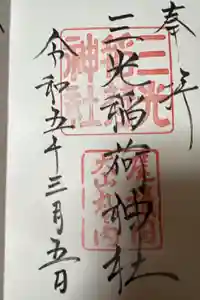 奉拝
三光稲荷神社
令和五年三月五日
三光
稲荷
神社